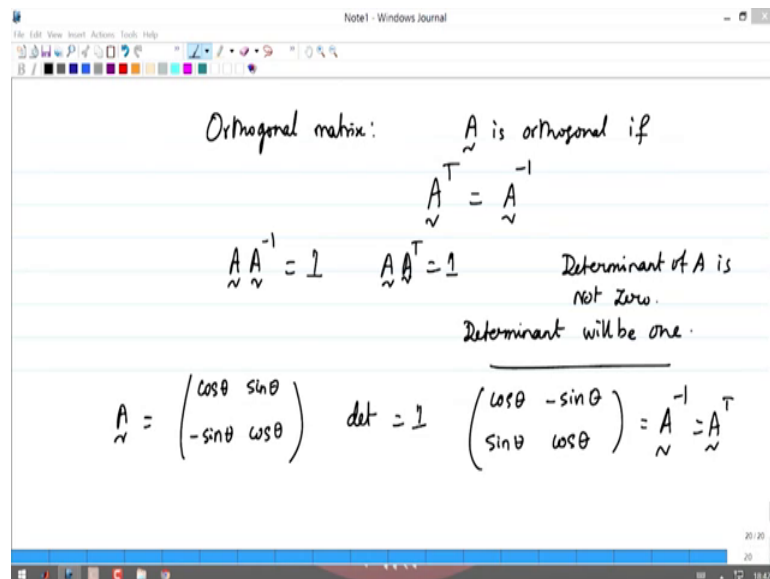 Note1 - Windows Journal
File Edit View Insert Actions Tools Help
B I
Orthogonal matrix: A is orthogonal if
A^T = A^-1
A A^-1 = 1 A A^T = 1 Determinant of A is
not zero.
Determinant will be one.
A = ( cosθ sinθ
-sinθ cosθ ) det = 1 ( cosθ -sinθ
sinθ cosθ ) = A^-1 = A^T
20/20
20